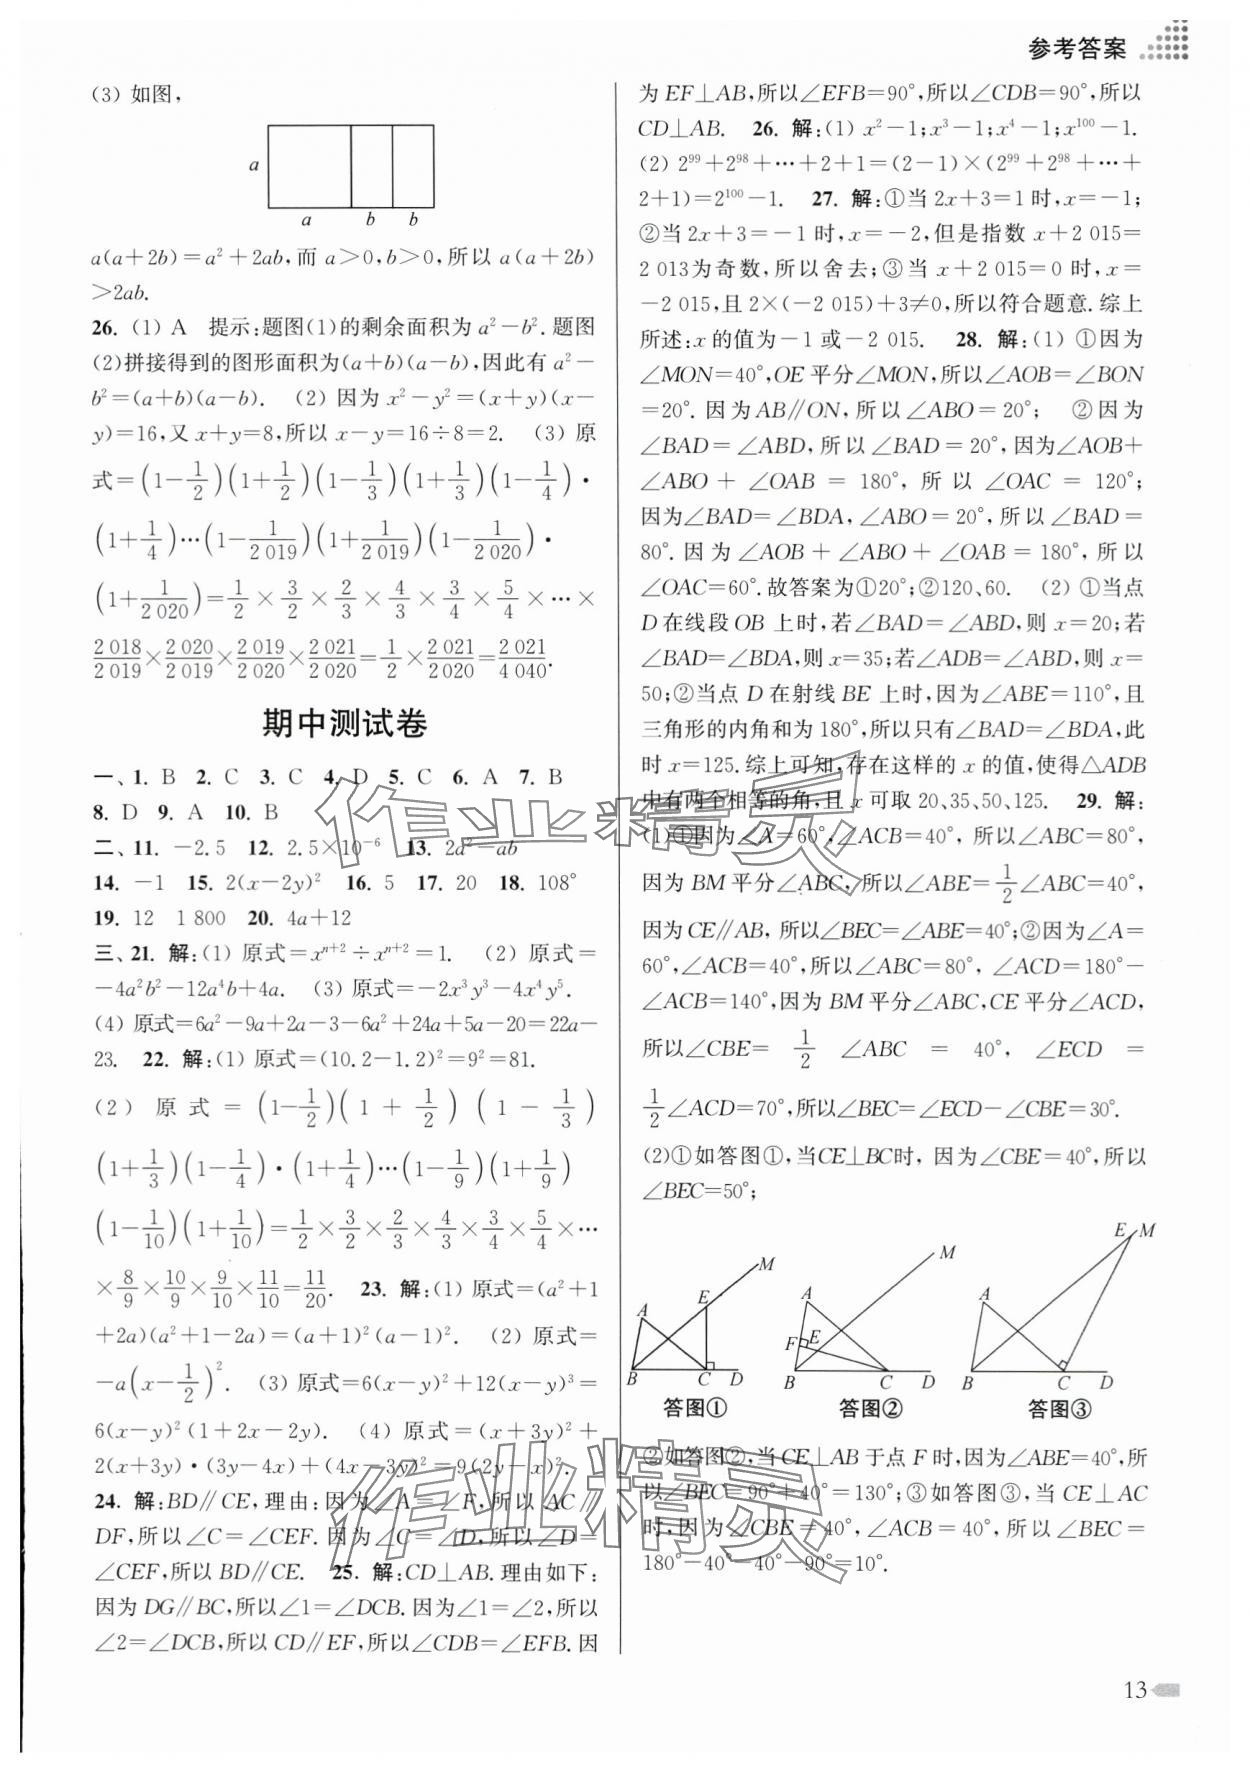 参考答案
(3) 如图,
a
a b b
a(a+2b)=a²+2ab,而 a>0,b>0,所以 a(a+2b)
>2ab.
26. (1) A 提示:题图(1)的剩余面积为 a²-b².题图
(2)拼接得到的图形面积为(a+b)(a-b),因此有 a²-
b²=(a+b)(a-b). (2) 因为 x²-y²=(x+y)(x-
y)=16,又 x+y=8,所以 x-y=16÷8=2. (3) 原
式=(1-1/2)(1+1/2)(1-1/3)(1+1/3)(1-1/4)·
(1+1/4)…(1-1/2 019)(1+1/2 019)(1-1/2 020)·
(1+1/2 020)=1/2×3/2×2/3×4/3×3/4×5/4×…×
2 018/2 019×2 020/2 019×2 019/2 020×2 021/2 020=1/2×2 021/2 020=2 021/4 040.
期中测试卷
一、1. B 2. C 3. C 4. D 5. C 6. A 7. B
8. D 9. A 10. B
二、11. -2.5 12. 2.5×10⁻⁶ 13. 2a²-ab
14. -1 15. 2(x-2y)² 16. 5 17. 20 18. 108°
19. 12 1 800 20. 4a+12
三、21. 解:(1) 原式=xⁿ⁺²÷xⁿ⁺²=1. (2) 原式=
-4a²b²-12a⁴b+4a. (3) 原式=-2x³y³-4x⁴y⁵.
(4) 原式=6a²-9a+2a-3-6a²+24a+5a-20=22a-
23. 22. 解:(1) 原式=(10.2-1.2)²=9²=81.
(2) 原式=(1-1/2)(1+1/2)(1-1/3)
(1+1/3)(1-1/4)·(1+1/4)…(1-1/9)(1+1/9)
(1-1/10)(1+1/10)=1/2×3/2×2/3×4/3×3/4×5/4×…
×8/9×10/9×9/10×11/10=11/20. 23. 解:(1) 原式=(a²+1
+2a)(a²+1-2a)=(a+1)²(a-1)². (2) 原式=
-a(x-1/2)². (3) 原式=6(x-y)²+12(x-y)³=
6(x-y)²(1+2x-2y). (4) 原式=(x+3y)²+
2(x+3y)·(3y-4x)+(4x-3y)²=9(2y-x)².
24. 解:BD∥CE,理由:因为∠A=∠F,所以 AC∥
DF,所以∠C=∠CEF.因为∠C=∠D,所以∠D=
∠CEF,所以 BD∥CE. 25. 解:CD⊥AB.理由如下:
因为 DG∥BC,所以∠1=∠DCB.因为∠1=∠2,所以
∠2=∠DCB,所以 CD∥EF,所以∠CDB=∠EFB.因
为 EF⊥AB,所以∠EFB=90°,所以∠CDB=90°,所以
CD⊥AB. 26. 解:(1) x²-1;x³-1;x⁴-1;x¹⁰⁰-1.
(2) 2⁹⁹+2⁹⁸+…+2+1=(2-1)×(2⁹⁹+2⁹⁸+…+
2+1)=2¹⁰⁰-1. 27. 解:①当 2x+3=1 时,x=-1;
②当 2x+3=-1 时,x=-2,但是指数 x+2 015=
2 013为奇数,所以舍去;③当 x+2 015=0 时,x=
-2 015,且 2×(-2 015)+3≠0,所以符合题意.综上
所述:x 的值为-1 或-2 015. 28. 解:(1) ①因为
∠MON=40°,OE 平分∠MON,所以∠AOB=∠BON
=20°.因为AB∥ON,所以∠ABO=20°; ②因为
∠BAD=∠ABD,所以∠BAD=20°,因为∠AOB+
∠ABO+∠OAB=180°,所以∠OAC=120°;
因为∠BAD=∠BDA,∠ABO=20°,所以∠BAD=
80°.因为∠AOB+∠ABO+∠OAB=180°,所以
∠OAC=60°.故答案为①20°;②120、60. (2) ①当点
D在线段OB 上时,若∠BAD=∠ABD,则 x=20;若
∠BAD=∠BDA,则 x=35;若∠ADB=∠ABD,则 x=
50;②当点 D在射线 BE 上时,因为∠ABE=110°,且
三角形的内角和为 180°,所以只有∠BAD=∠BDA,此
时 x=125.综上可知,存在这样的 x 的值,使得△ADB
中有两个相等的角,且 x 可取 20、35、50、125. 29. 解:
(1)①因为∠A=60°,∠ACB=40°,所以∠ABC=80°,
因为 BM 平分∠ABC,所以∠ABE=1/2∠ABC=40°,
因为CE∥AB,所以∠BEC=∠ABE=40°;②因为∠A=
60°,∠ACB=40°,所以∠ABC=80°,∠ACD=180°-
∠ACB=140°,因为 BM 平分∠ABC,CE 平分∠ACD,
所以∠CBE=1/2∠ABC=40°,∠ECD=
1/2∠ACD=70°,所以∠BEC=∠ECD-∠CBE=30°.
(2)①如答图①,当CE⊥BC时,因为∠CBE=40°,所以
∠BEC=50°;
A E M B C D
答图①
A F E M B C D
答图②
A E M B C D
答图③
②如答图②,当 CE⊥AB 于点 F 时,因为∠ABE=40°,所
以∠BEC=90°+40°=130°;③如答图③,当 CE⊥AC
时,因为∠CBE=40°,∠ACB=40°,所以∠BEC=
180°-40°-40°-90°=10°.
作业精灵
作业精灵
13